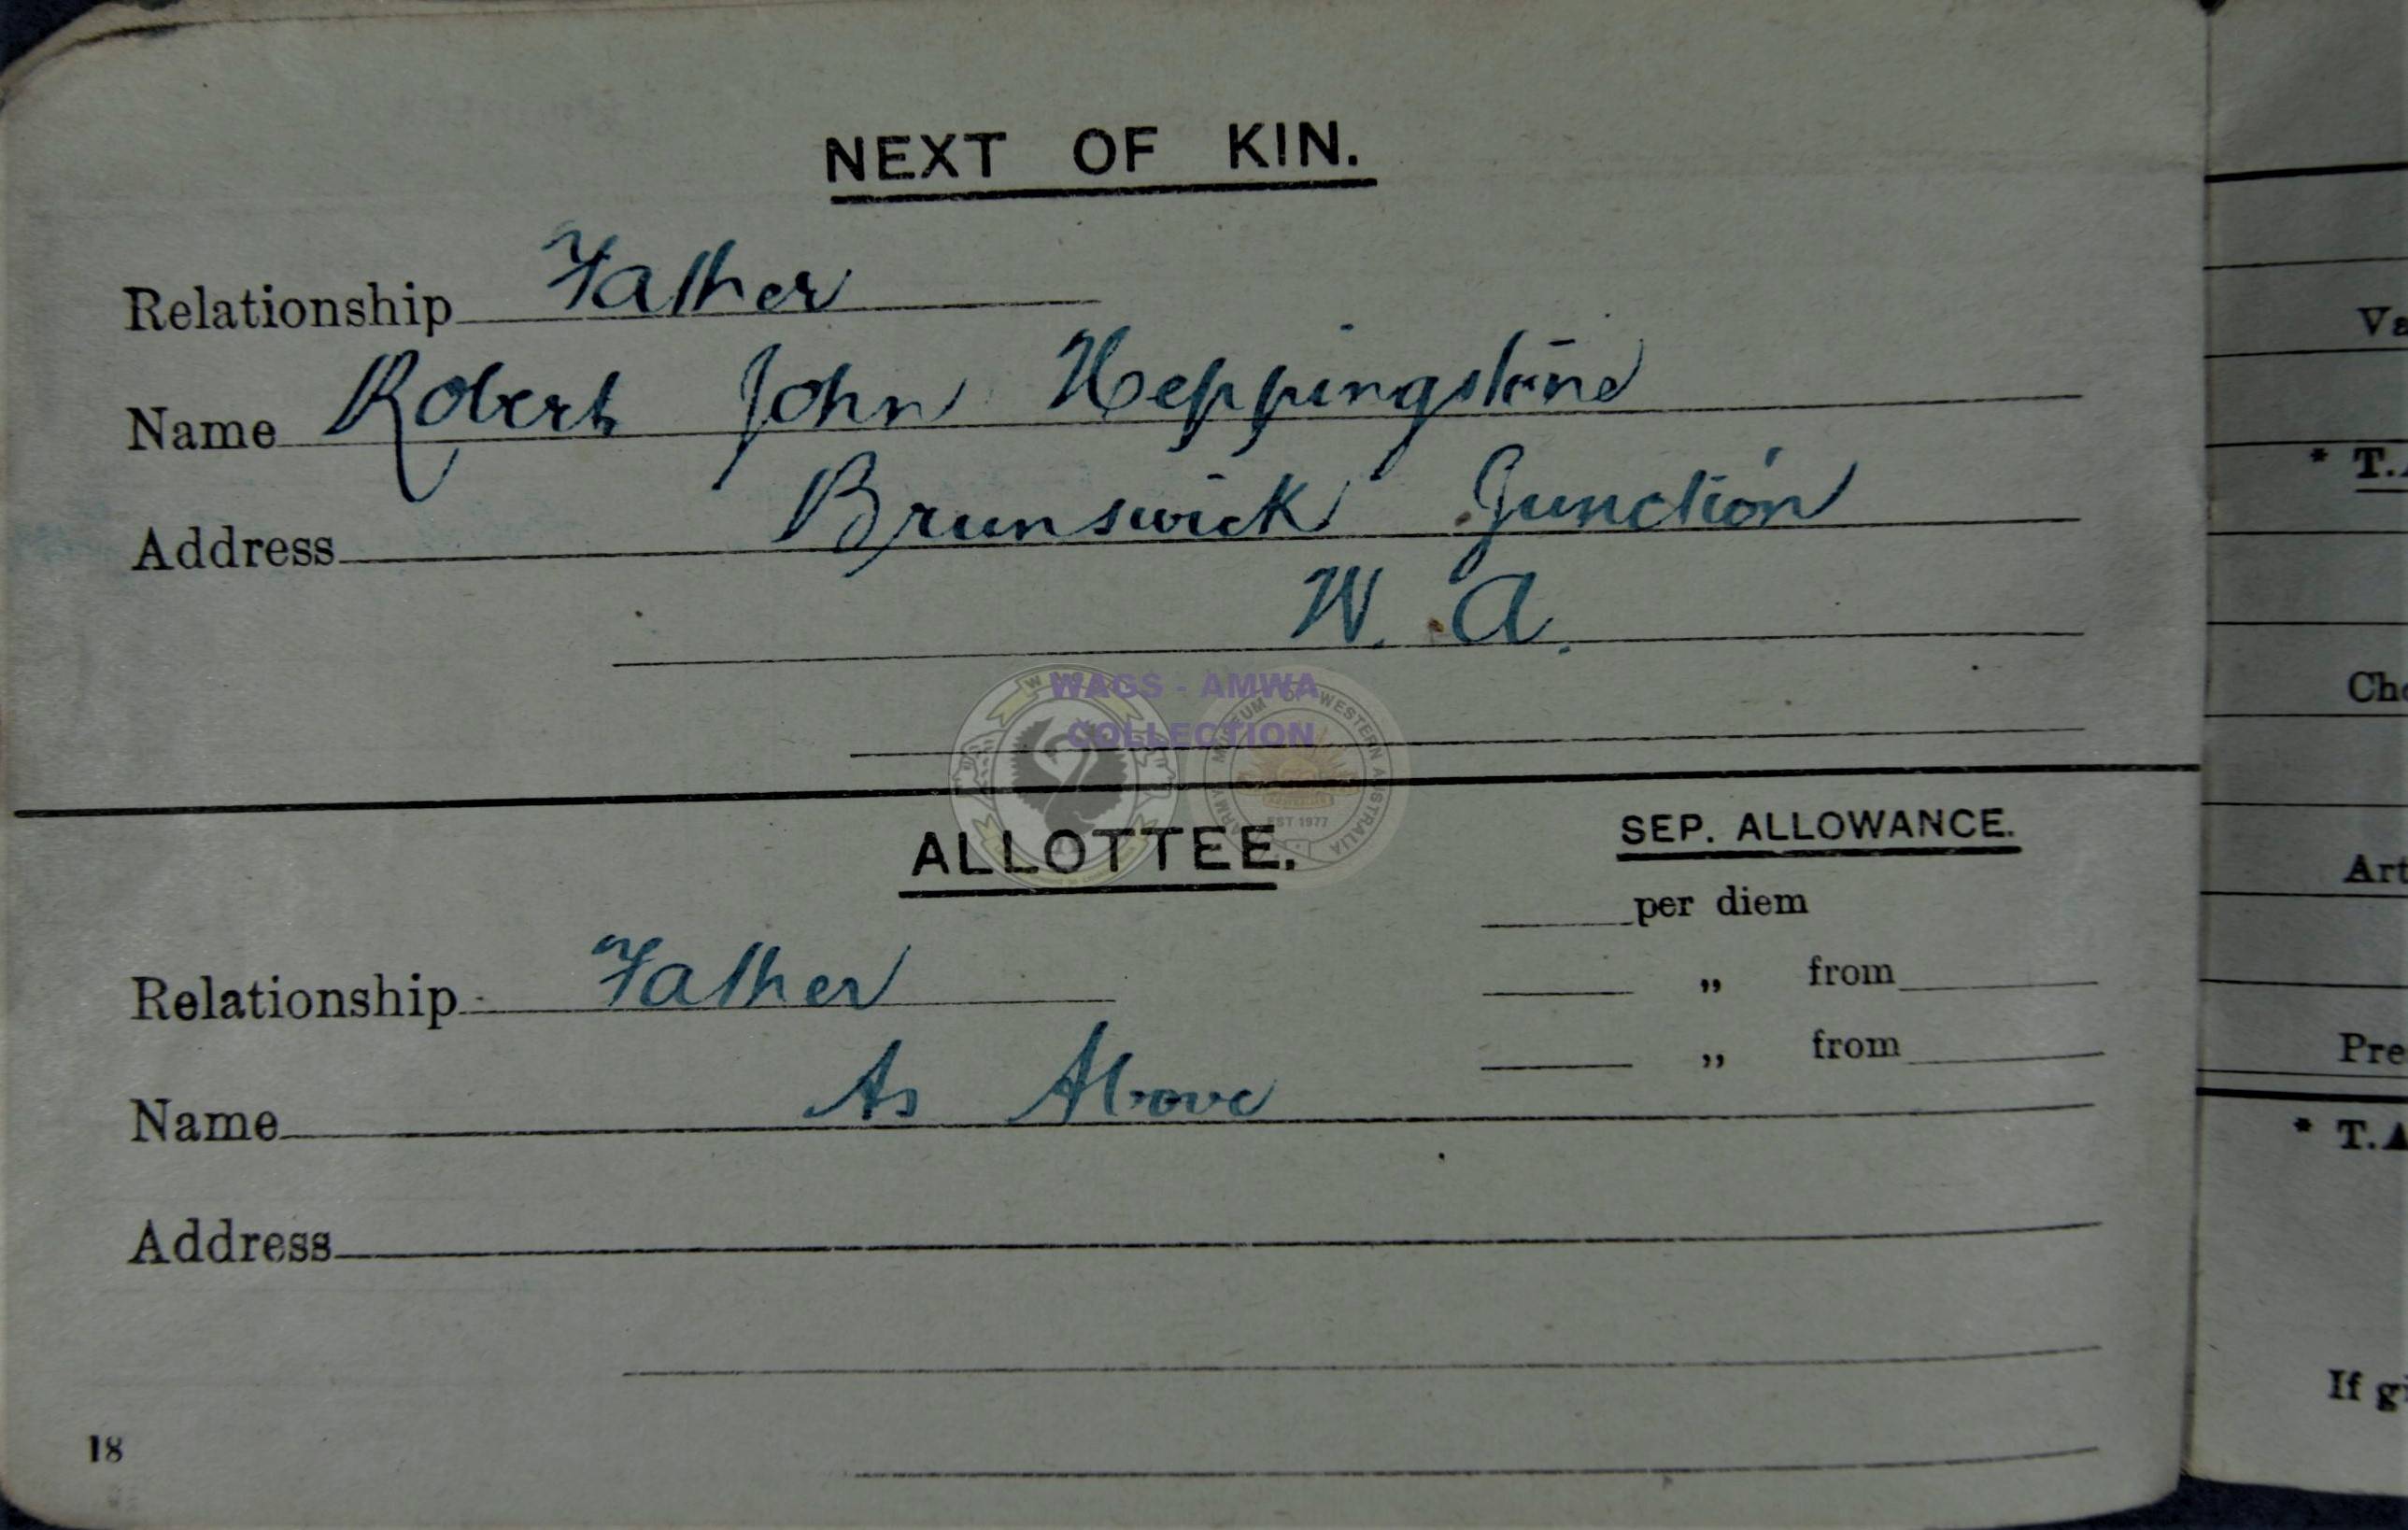 NEXT OF KIN.
Relationship Father
Name Robert John Heppingstone
Address Brunswick Junction
W. A.
WAGS - AMWA
COLLECTION
MUSEUM OF WESTERN AUSTRALIA
ARMY
EST 1977
ALLOTTEE.
SEP. ALLOWANCE.
per diem
Relationship Father
„ from
„ from
Name As Above
Address
18
Va
* T.A
Cho
Art
Pre
* T.A
If gi